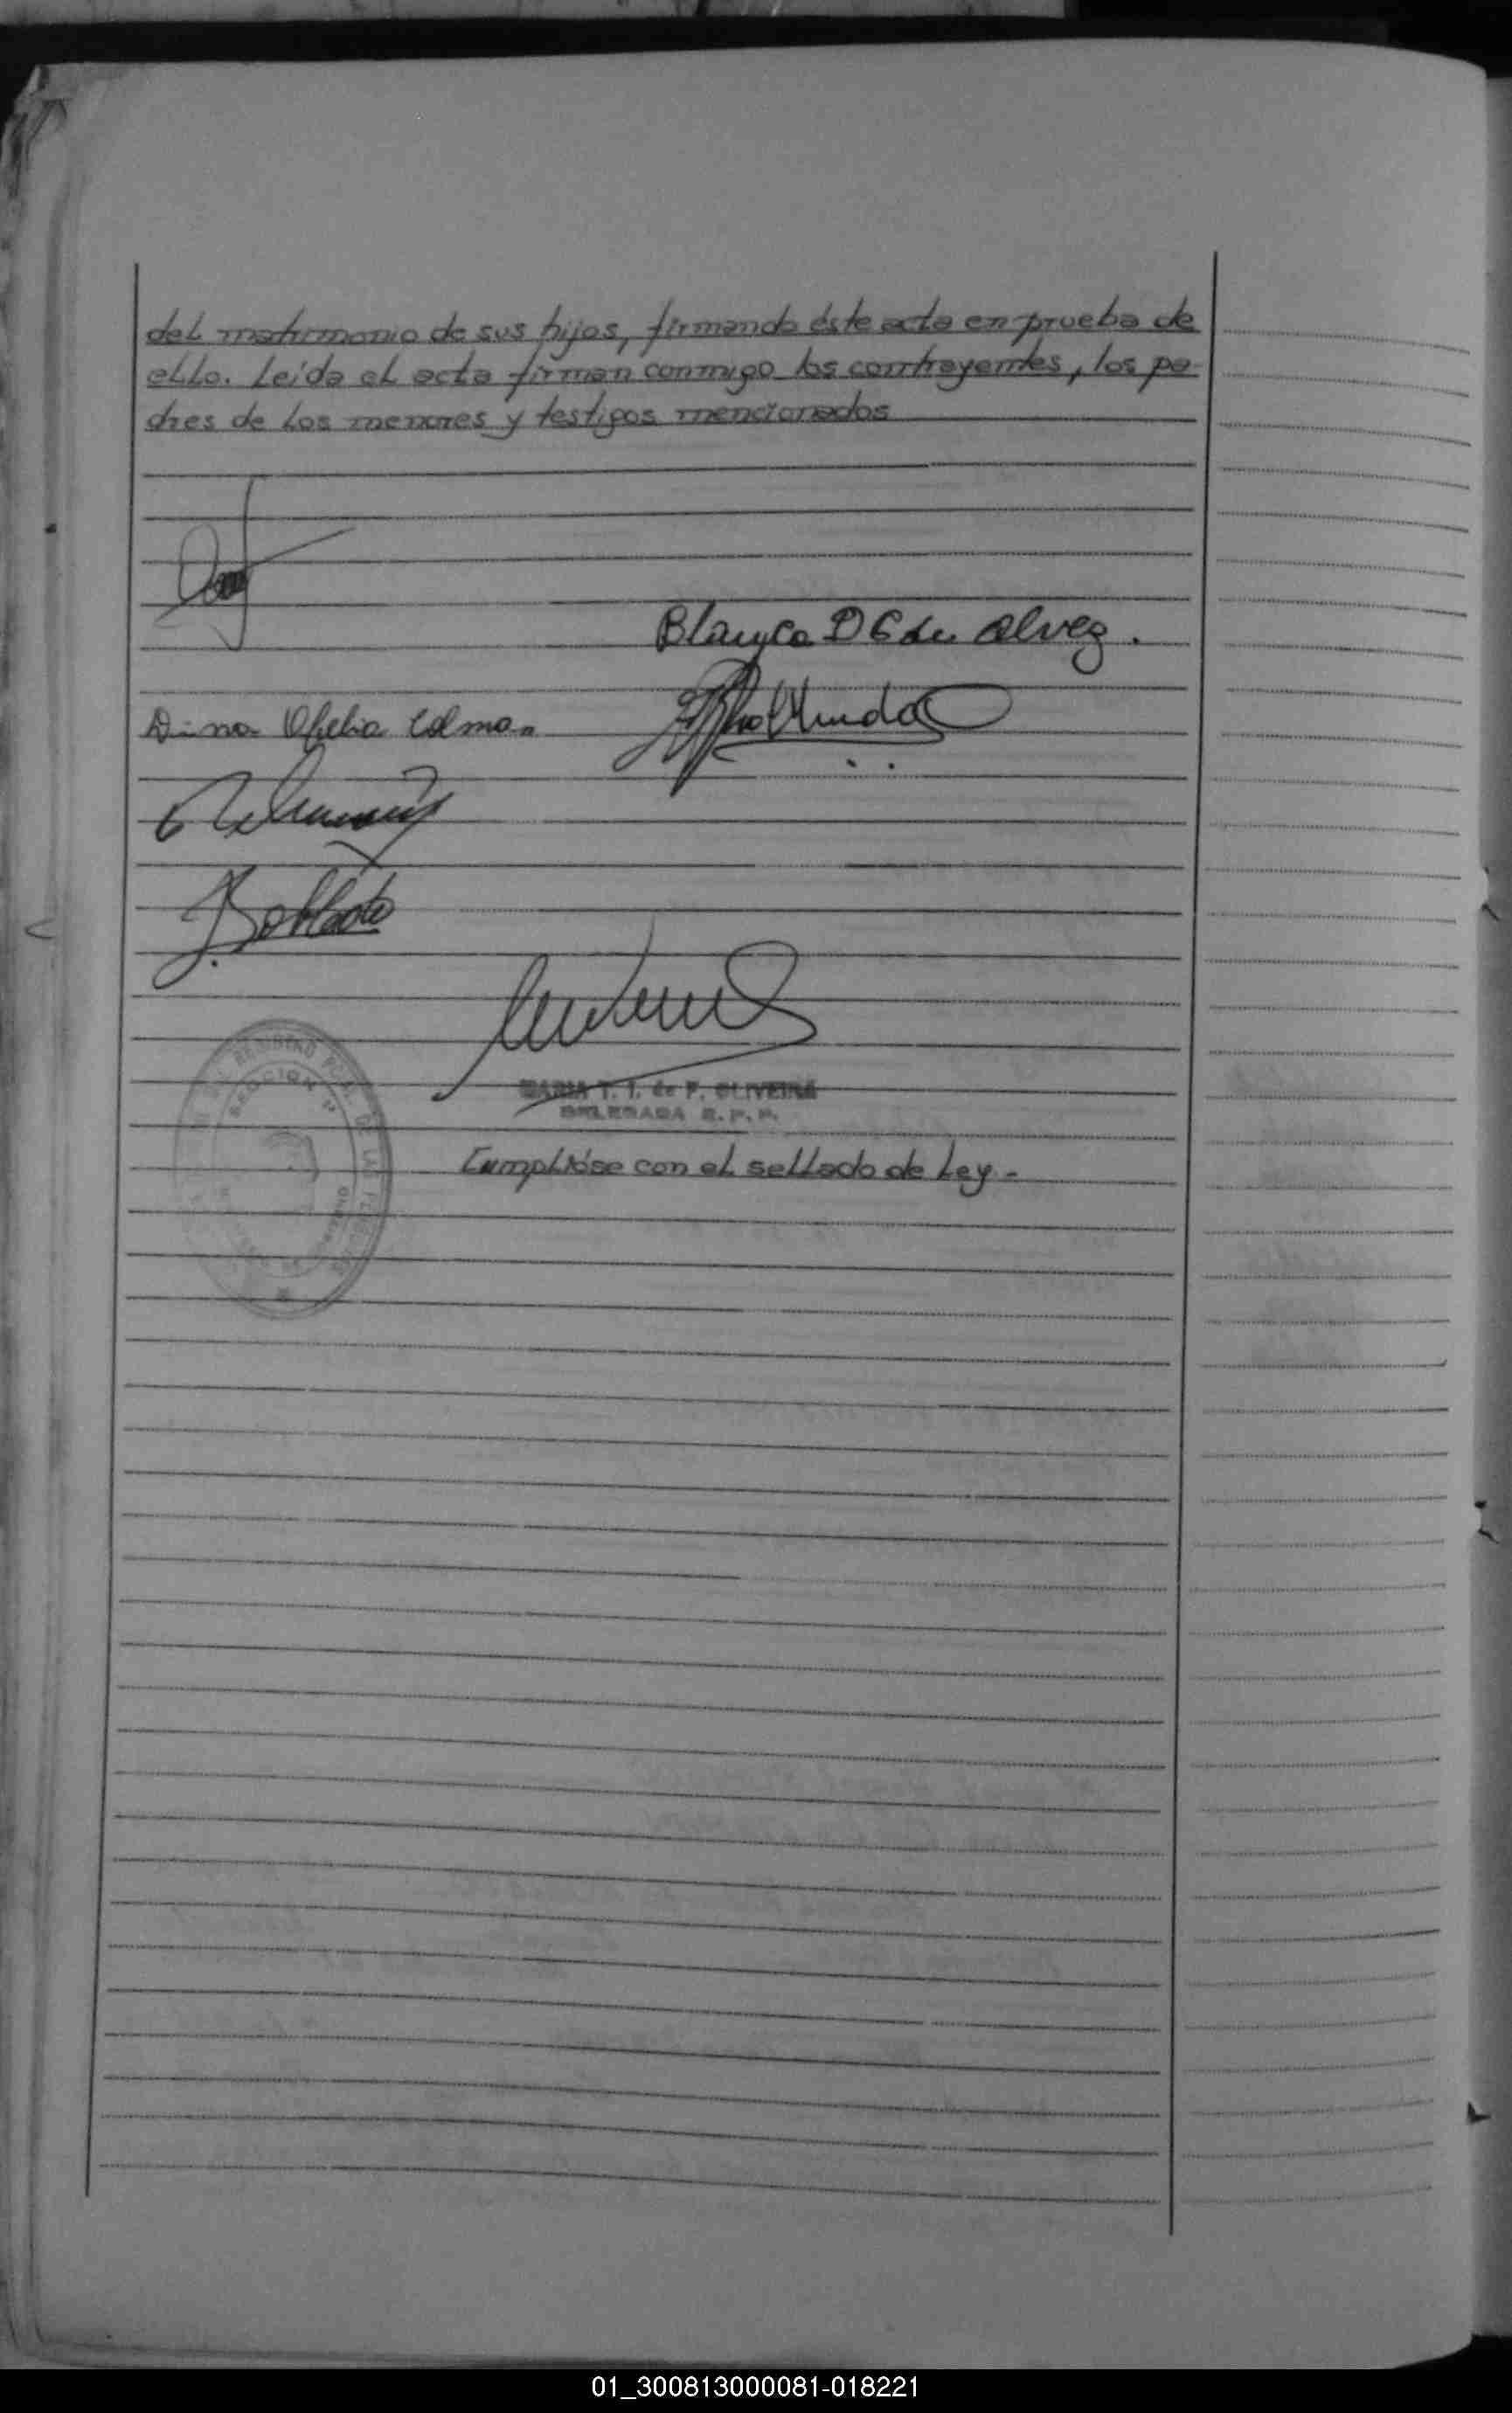 del matrimonio de sus hijos, firmando éste acta en prueba de
ello. Leída el acta firman conmigo los contrayentes, los pa-
dres de los menores y testigos mencionados
Blanca D G de Alvez.
Dina Ofelia Colman
MARIA T. I. de P. OLIVEIRA
DELEGADA R. P. P.
Cumplióse con el sellado de Ley.-
SECCION 1ª
01_300813000081-018221